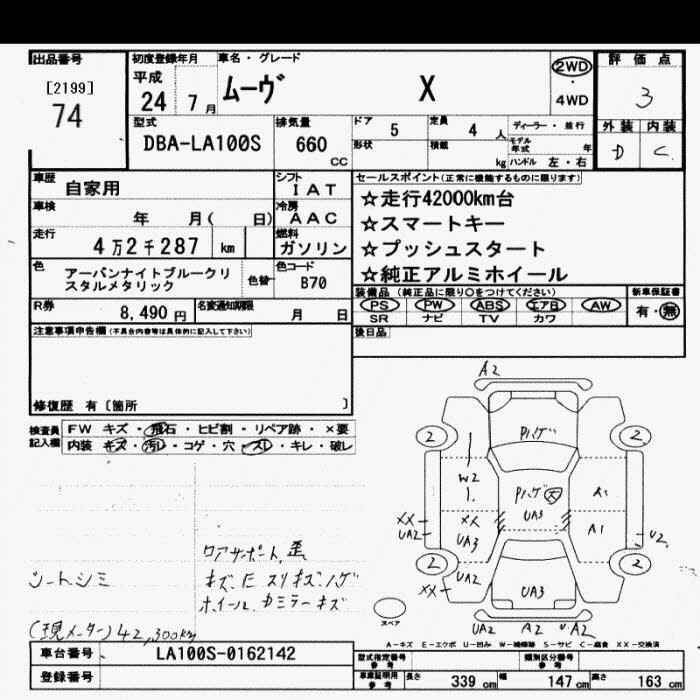 出品番号
[2199]
74
初度登録年月
平成
24 7 月
車名・グレード
ムーヴ X
2WD
・
4WD
評価点
3
外装 内装
D C
型式
DBA-LA100S
排気量
660
CC
ドア 5
定員 4 人
ディーラー・並行
形状
積載 kg
モデル年式 年
ハンドル 左・右
車歴 自家用
シフト IAT
車検 年 月( 日)
冷房 AAC
走行 4万2千287 km
燃料 ガソリン
色 アーバンナイトブルークリスタルメタリック
色替
色コード B70
R券 8,490 円
名変通知期限 月 日
セールスポイント(正常に機能するものに限ります)
☆走行42000km台
☆スマートキー
☆プッシュスタート
☆純正アルミホイール
装備品(純正品に限り○をつけてください)
PS PW ABS エアB AW
SR ナビ TV カワ
新車保証書
有・無
後日品
注意事項申告欄(不具合内容等は具体的に記入して下さい)
修復歴 有〔箇所 〕
検査員記入欄
FW キズ・飛石・ヒビ割・リペア跡・×要
内装 キズ・汚レ・コゲ・穴・スレ・キレ・破レ
シートシミ
ロアサポート歪
キズ.E スリキズ.ハゲ
ホイール.カミラーキズ
(現メーター)42,300km
A2
Pハゲ
2 2
W2
1.
Pハゲ 大
UA3
A1
XX
UA2
XX
UA3
A1
U2
2 2
UA2
XX
UA3
UA2 A2 UA2
スペア
A-キズ E-エクボ U-凹み W-補修跡 S-サビ C-腐食 XX-交換済
車台番号 LA100S-0162142
登録番号
型式指定番号 参考
類別区分番号 参考
車庫証明用 参考
長さ 339 cm 幅 147 cm 高さ 163 cm